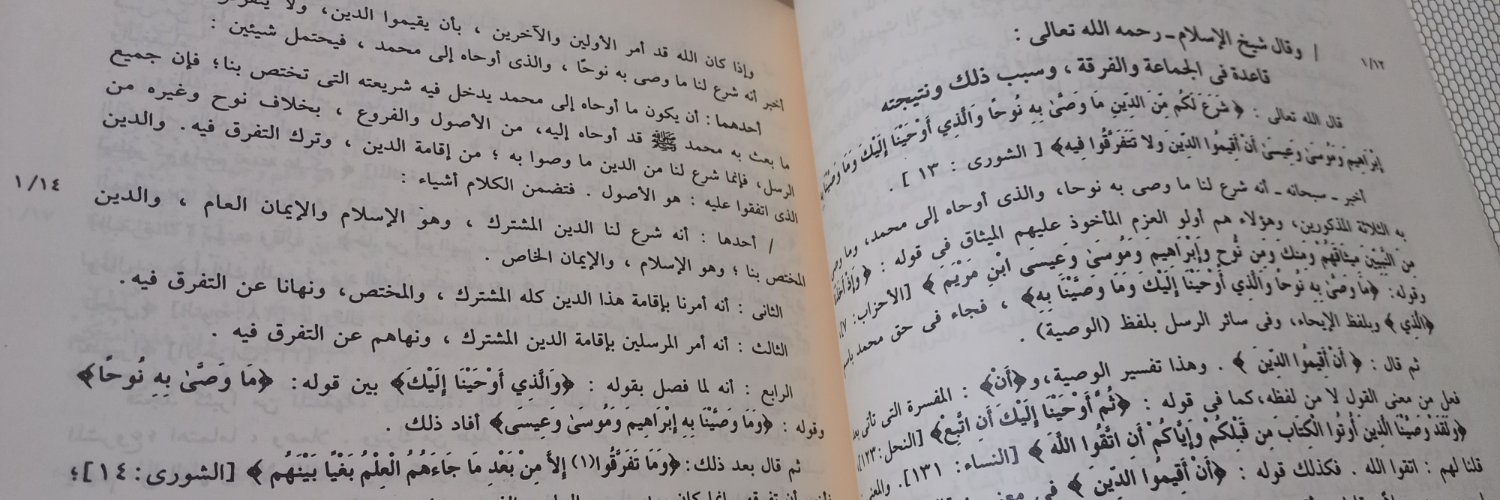 ١/١٣
/ وقال شيخ الإسلام ـ رحمه الله تعالى :
قاعدة فى الجماعة والفرقة ، وسبب ذلك ونتيجته
قال الله تعالى : ﴿ شَرَعَ لَكُم مِّنَ الدِّينِ مَا وَصَّىٰ بِهِ نُوحًا وَالَّذِي أَوْحَيْنَا إِلَيْكَ وَمَا وَصَّيْنَا
إِبْرَاهِيمَ وَمُوسَىٰ وَعِيسَىٰ أَنْ أَقِيمُوا الدِّينَ وَلا تَتَفَرَّقُوا فِيهِ﴾ [ الشورى : ١٣ ] .
أخبر ـ سبحانه ـ أنه شرع لنا ما وصى به نوحا، والذى أوحاه إلى محمد، وما
به الثلاثة المذكورين، وهؤلاء هم أولو العزم المأخوذ عليهم الميثاق فى قوله : ﴿ وَإِذْ
مِنَ النَّبِيِّينَ مِيثَاقَهُمْ وَمِنكَ وَمِن نُّوحٍ وَإِبْرَاهِيمَ وَمُوسَىٰ وَعِيسَى ابْنِ مَرْيَمَ ﴾ [الأحزاب: ٧
وقوله: ﴿مَا وَصَّىٰ بِهِ نُوحًا وَالَّذِي أَوْحَيْنَا إِلَيْكَ وَمَا وَصَّيْنَا بِهِ﴾ ، فجاء فى حق محمد
﴿الَّذِي ﴾ وبلفظ الإيحاء، وفى سائر الرسل بلفظ (الوصية) .
ثم قال : ﴿ أَنْ أَقِيمُوا الدِّينَ ﴾ . وهذا تفسير الوصية، و﴿أَنْ﴾ : المفسرة التى تأتى
فعل من معنى القول لا من لفظه، كما فى قوله : ﴿ثُمَّ أَوْحَيْنَا إِلَيْكَ أَنِ اتَّبِعْ﴾ [النحل: ١٢٣]
﴿وَلَقَدْ وَصَّيْنَا الَّذِينَ أُوتُوا الْكِتَابَ مِن قَبْلِكُمْ وَإِيَّاكُمْ أَنِ اتَّقُوا اللَّهَ ﴾ [النساء: ١٣١].
قلنا لهم : اتقوا الله . فكذلك قوله : ﴿أَنْ أَقِيمُوا الدِّينَ ﴾ فى
وإذا كان الله قد أمر الأولين والآخرين ، بأن يقيموا الدين، ولا
أخبر أنه شرع لنا ما وصى به نوحًا ، والذى أوحاه إلى محمد ، فيحتمل شيئين :
أحدهما : أن يكون ما أوحاه إلى محمد يدخل فيه شريعته التى تختص بنا؛ فإن جميع
ما بعث به محمد ﷺ قد أوحاه إليه، من الأصول والفروع ، بخلاف نوح وغيره من
الرسل، فإنما شرع لنا من الدين ما وصوا به ؛ من إقامة الدين ، وترك التفرق فيه. والدين
الذى اتفقوا عليه : هو الأصول . فتضمن الكلام أشياء :
١/١٤
/ أحدها : أنه شرع لنا الدين المشترك ، وهو الإسلام والإيمان العام ، والدين
المختص بنا ؛ وهو الإسلام ، والإيمان الخاص .
الثانى : أنه أمرنا بإقامة هذا الدين كله المشترك ، والمختص، ونهانا عن التفرق فيه.
الثالث : أنه أمر المرسلين بإقامة الدين المشترك ، ونهاهم عن التفرق فيه .
الرابع : أنه لما فصل بقوله : ﴿وَالَّذِي أَوْحَيْنَا إِلَيْكَ﴾ بين قوله: ﴿مَا وَصَّىٰ بِهِ نُوحًا﴾
وقوله : ﴿وَمَا وَصَّيْنَا بِهِ إِبْرَاهِيمَ وَمُوسَىٰ وَعِيسَى﴾ أفاد ذلك .
ثم قال بعد ذلك: ﴿وَمَا تَفَرَّقُوا(١) إِلاَّ مِنْ بَعْدِ مَا جَاءَهُمُ الْعِلْمُ بَغْيًا بَيْنَهُم ﴾ [الشورى: ١٤]؛